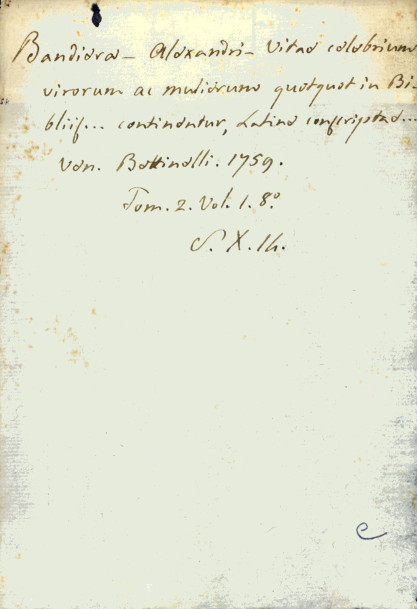 Bandiera - Alexandri - Vitae celebrium
virorum ac mulierum quotquot in Bi-
bliis... continentur, Latine conscriptae...
Ven. Bettinelli. 1759.
Tom. 2. Vol. 1. 8.º
S. X. 14.
e